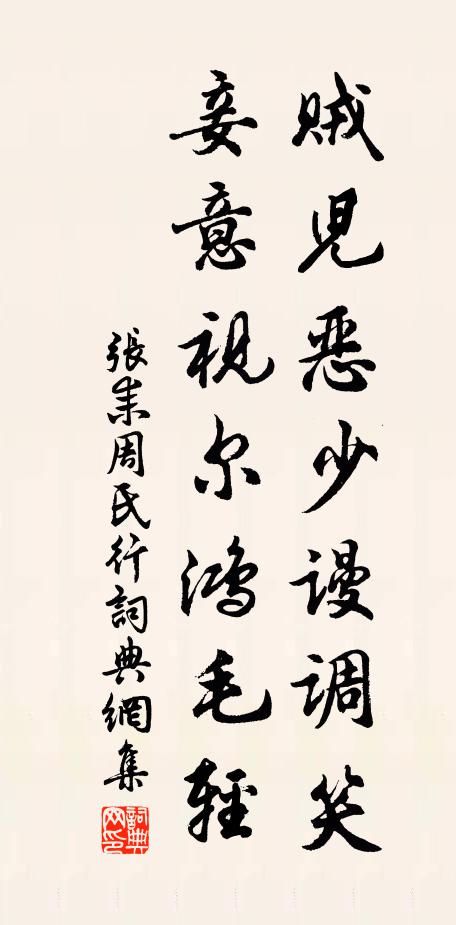 贼児恶少谩调笑
妾意视尔鸿毛轻
張耒周氏行詞典網集
詞典网印